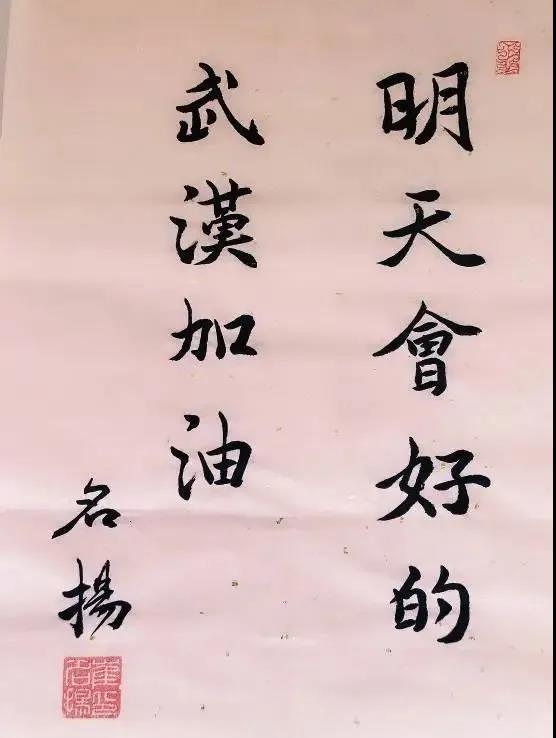 明天會好的
武漢加油
名揚